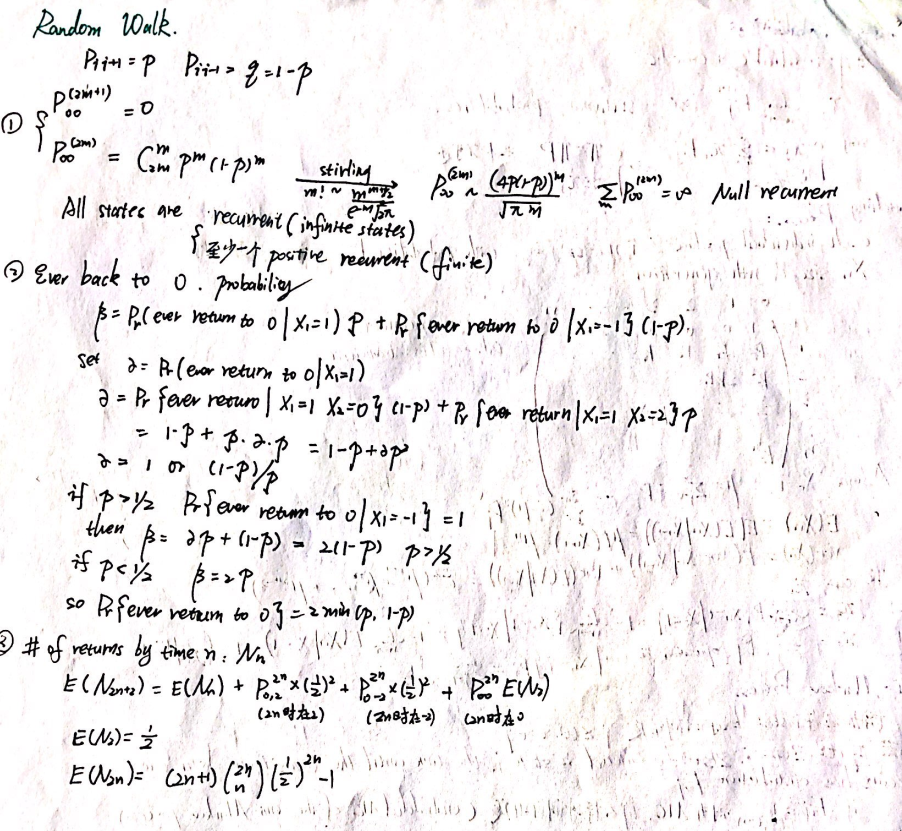 Random Walk.
P_{i i+1} = p   P_{i i-1} = q = 1-p
① { P_{00}^{(2m+1)} = 0
P_{00}^{(2m)} = C_{2m}^{m} p^m (1-p)^m   stirling   m! ~ m^{m+1/2} e^{-m} √2π   P_{00}^{(2m)} ~ (4p(1-p))^m / √πm   Σ_m P_{00}^{(2m)} = ∞   Null recurrent
All states are { recurrent (infinite states)
至少一个 positive recurrent (finite)
② Ever back to 0. probability
β = Pr(ever return to 0 | X₁=1) p + Pr{ever return to 0 | X₁=-1} (1-p).
set   ∂ = Pr(ever return to 0 | X₁=1)
∂ = Pr{ever return | X₁=1 X₂=0} (1-p) + Pr{ever return | X₁=1 X₂=2} p
= 1-p + p·∂·p = 1-p+∂p²
∂ = 1 or (1-p)/p
if p > 1/2   Pr{ever return to 0 | X₁=-1} = 1
then   β = ∂p + (1-p) = 2(1-p)   p > 1/2
if p < 1/2   β = 2p
so Pr{ever return to 0} = 2 min(p, 1-p)
③ # of returns by time n: Nn
E(N_{2n+2}) = E(N_{2n}) + P_{0,2}^{2n} × (1/2)² + P_{0-2}^{2n} × (1/2)² + P_{00}^{2n} E(N₂)
(2n时在2)   (2n时在-2)   (2n时在0
E(N₂) = 1/2
E(N_{2n}) = (2n+1) (2n n) (1/2)^{2n} - 1